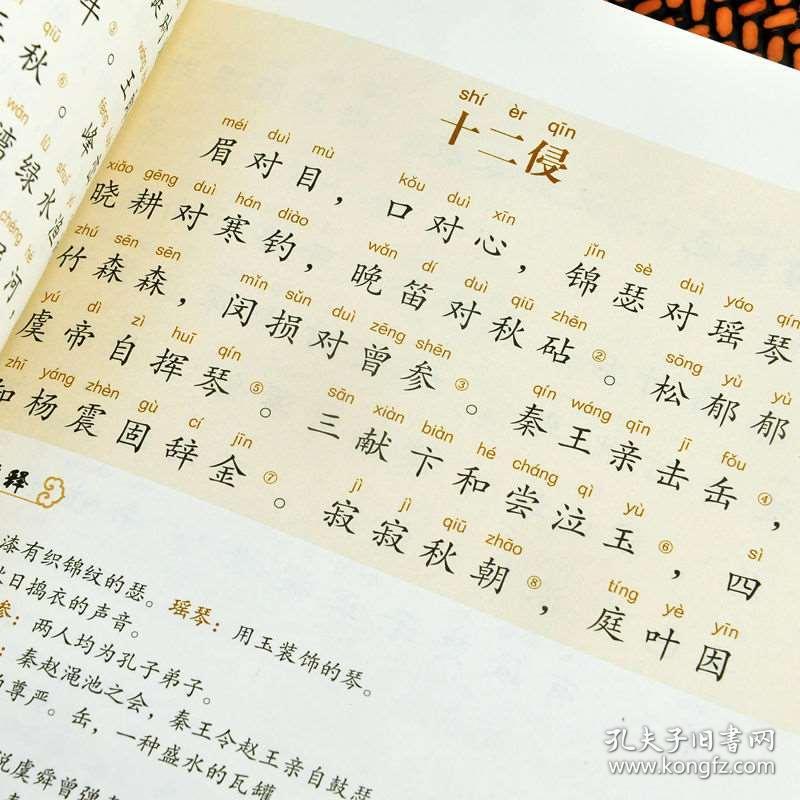 秋④。
湾绿水
河
shí èr qīn
十二侵
méi duì mù kǒu duì xīn jǐn sè duì yáo qín
眉对目，口对心，锦瑟对瑶琴
xiǎo gēng duì hán diào wǎn dí duì qiū zhēn sōng yù yù
晓耕对寒钓，晚笛对秋砧②。松郁郁
zhú sēn sēn mǐn sǔn duì zēng shēn qín wáng qīn jī fǒu
竹森森，闵损对曾参③。秦王亲击缶④，
yú dì zì huī qín sān xiàn biàn hé cháng qì yù sì
虞帝自挥琴⑤。三献卞和尝泣玉⑥，四
zhī yáng zhèn gù cí jīn jì jì qiū zhāo tíng yè yīn
知杨震固辞金⑦。寂寂秋朝⑧，庭叶因
释
漆有织锦纹的瑟。瑶琴：用玉装饰的琴。
日捣衣的声音。
参：两人均为孔子弟子。
：秦赵渑池之会，秦王令赵王亲自鼓瑟
的尊严。缶，一种盛水的瓦罐
说虞舜曾弹
孔夫子旧书网
www.kongfz.com